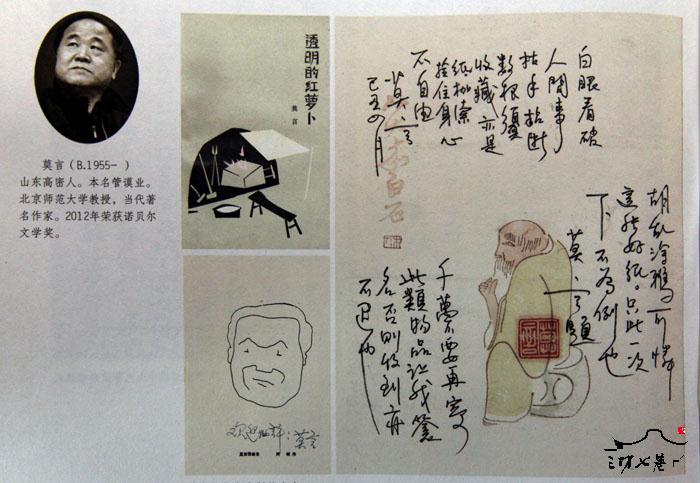 莫言（B.1955- ）
山东高密人。本名管谟业。
北京师范大学教授，当代著
名作家。2012年荣获诺贝尔
文学奖。
透明的红萝卜
莫言
欢迎批评：莫言
白眼看破
人間事
拈斷
數根須
收藏亦是
纸枷索
拴住身心
不自由
莫言
己丑四月
白石
胡乱涂鸦可憐
這些好纸。只此一次
下不为例也
莫言题
千萬不要再寄
此類物品让我簽
名否則收到亦
不退也